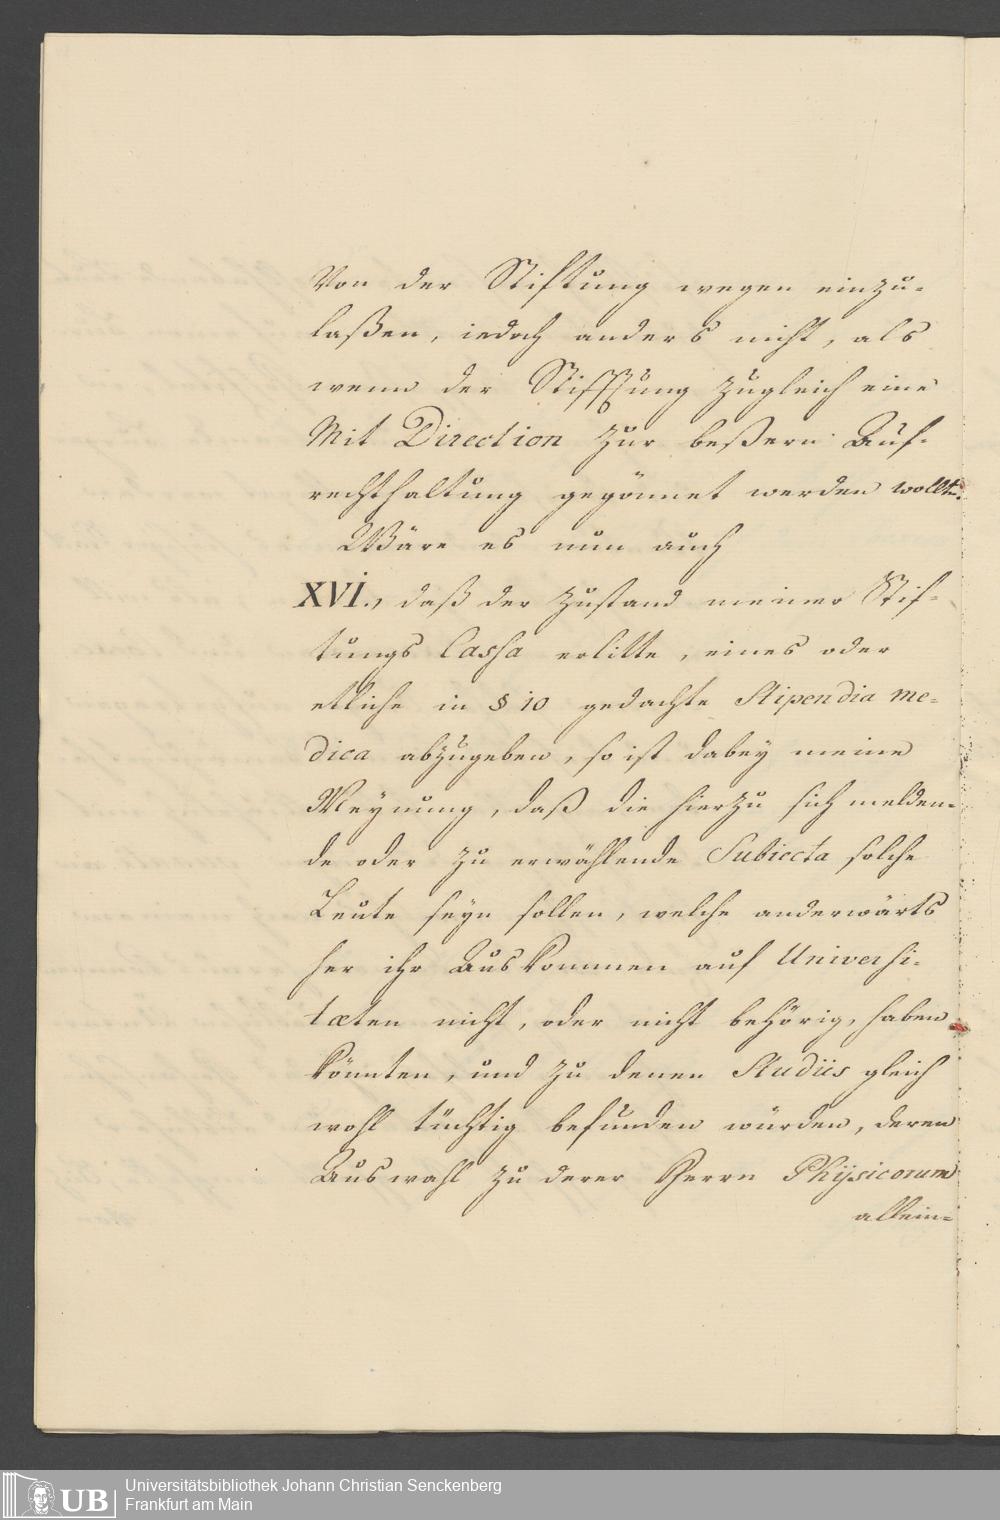 Von der Stiftung wegen einzu-
laßen, iedoch anders nicht, als
wenn der Stifftung zugleich eine
Mit Direction zur beßern Auf-
rechthaltung gegönnet werden wollte.
Wäre es nun auch
XVI., daß der Zustand meiner Stif-
tungs Cassa erlitte, eines oder
etliche in § 10 gedachte Stipendia me-
dica abzugeben, so ist dabey meine
Meynung, daß die hierzu sich melden-
de oder zu erwählende Subiecta solche
Leute seyn sollen, welche anderwärts
her ihr Auskommen auf Universi-
tæten nicht, oder nicht behörig, haben
könnten, und zu denen Studiis gleich
wohl tüchtig befunden würden, deren
Auswahl zu derer Herrn Physicorum
allein-
Universitätsbibliothek Johann Christian Senckenberg
Frankfurt am Main
UB